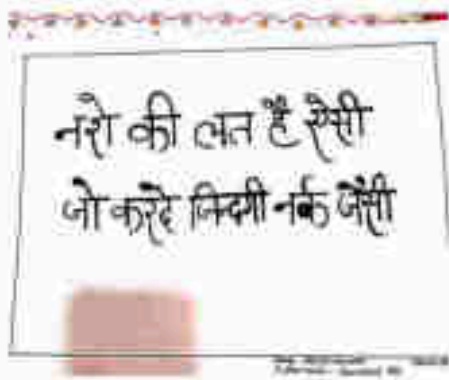 नशे की लत है ऐसी
जो करदे जिन्दगी नर्क जैसी